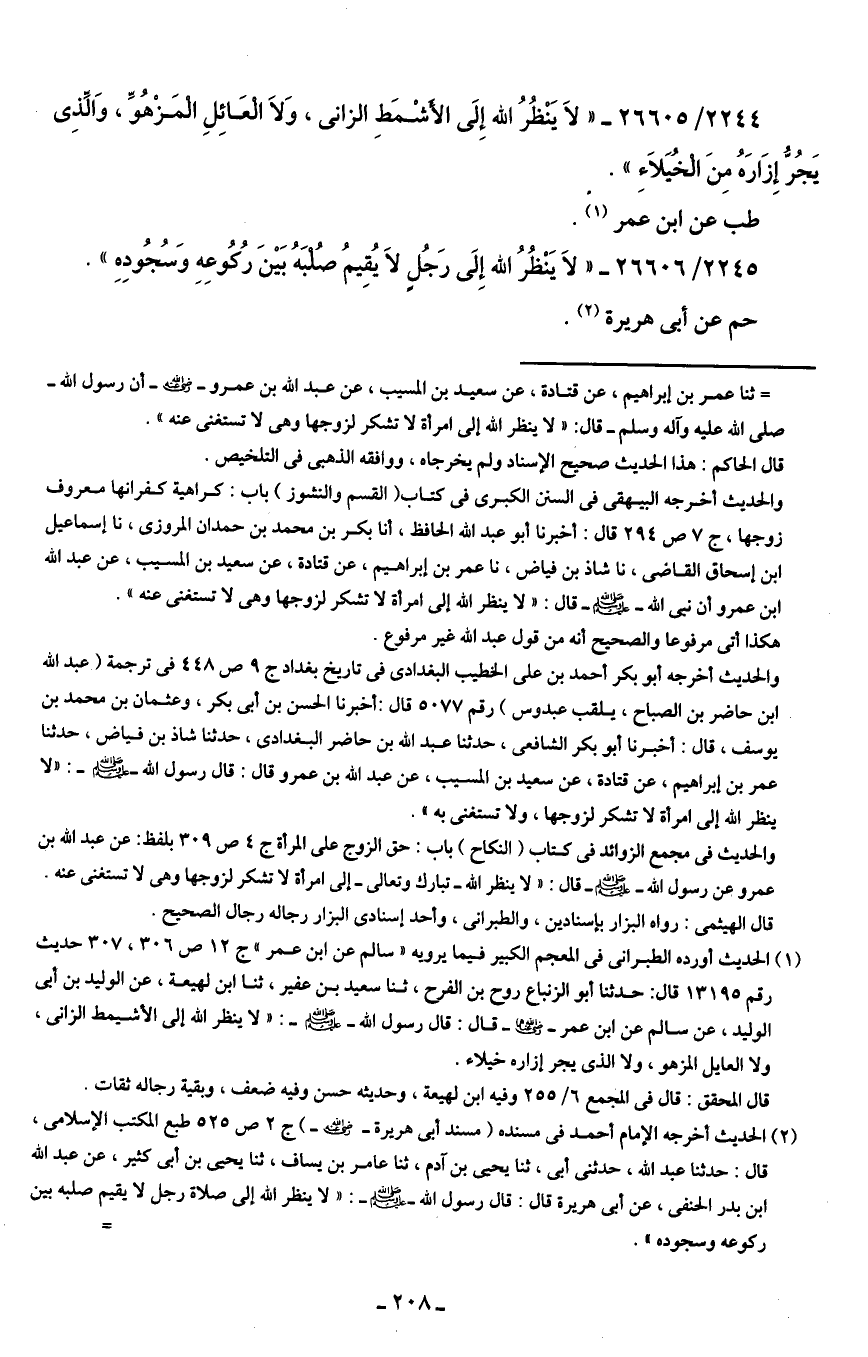 ٢٢٤٤/ ٢٦٦٠٥ ـ « لاَ يَنْظُرُ الله إِلَى الأَشْمَطِ الزانى ، وَلاَ الْعَائِلِ الْمَزْهُوِّ ، وَالَّذِى
يَجُرُّ إِزَارَهُ مِنَ الْخُيَلَاءِ » .
طب عن ابن عمر (١) .
٢٢٤٥/ ٢٦٦٠٦ ـ « لاَ يَنْظُرُ الله إِلَى رَجُلٍ لاَ يُقِيمُ صُلْبَهُ بَيْنَ رُكُوعِهِ وَسُجُودِهِ » .
حم عن أبى هريرة (٢) .
= ثنا عمر بن إبراهيم ، عن قتادة ، عن سعيد بن المسيب ، عن عبد الله بن عمرو ـ رضي الله عنه ـ أن رسول الله ـ
صلى الله عليه وآله وسلم ـ قال: « لا ينظر الله إلى امرأة لا تشكر لزوجها وهى لا تستغنى عنه » .
قال الحاكم : هذا الحديث صحيح الإسناد ولم يخرجاه ، ووافقه الذهبى فى التلخيص .
والحديث أخرجه البيهقى فى السنن الكبرى فى كتاب( القسم والنشوز ) باب : كراهية كفرانها معروف
زوجها ، ج ٧ ص ٢٩٤ قال : أخبرنا أبو عبد الله الحافظ ، أنا بكر بن محمد بن حمدان المروزى ، نا إسماعيل
ابن إسحاق القاضى ، نا شاذ بن فياض ، نا عمر بن إبراهيم ، عن قتادة ، عن سعيد بن المسيب ، عن عبد الله
ابن عمرو أن نبى الله ـ ﷺ ـ قال : « لا ينظر الله إلى امرأة لا تشكر لزوجها وهى لا تستغنى عنه » .
هكذا أتى مرفوعا والصحيح أنه من قول عبد الله غير مرفوع .
والحديث أخرجه أبو بكر أحمد بن على الخطيب البغدادى فى تاريخ بغداد ج ٩ ص ٤٤٨ فى ترجمة ( عبد الله
ابن حاضر بن الصباح ، يلقب عبدوس ) رقم ٥٠٧٧ قال :أخبرنا الحسن بن أبى بكر ، وعثمان بن محمد بن
يوسف ، قال : أخبرنا أبو بكر الشافعى ، حدثنا عبد الله بن حاضر البغدادى ، حدثنا شاذ بن فياض ، حدثنا
عمر بن إبراهيم ، عن قتادة ، عن سعيد بن المسيب ، عن عبد الله بن عمرو قال : قال رسول الله ـ ﷺ ـ : «لا
ينظر الله إلى امرأة لا تشكر لزوجها ، ولا تستغنى به » .
والحديث فى مجمع الزوائد فى كتاب ( النكاح ) باب : حق الزوج على المرأة ج ٤ ص ٣٠٩ بلفظ: عن عبد الله بن
عمرو عن رسول الله ـ ﷺ ـ قال : « لا ينظر الله ـ تبارك وتعالى ـ إلى امرأة لا تشكر لزوجها وهى لا تستغنى عنه .
قال الهيثمى : رواه البزار بإسنادين ، والطبرانى ، وأحد إسنادى البزار رجاله رجال الصحيح .
(١) الحديث أورده الطبرانى فى المعجم الكبير فيما يرويه « سالم عن ابن عمر » ج ١٢ ص ٣٠٦ ، ٣٠٧ حديث
رقم ١٣١٩٥ قال: حدثنا أبو الزنباع روح بن الفرح ، ثنا سعيد بن عفير ، ثنا ابن لهيعة ، عن الوليد بن أبى
الوليد ، عن سالم عن ابن عمر ـ رضي الله عنهما ـ قال : قال رسول الله ـ ﷺ ـ : « لا ينظر الله إلى الأشيمط الزانى ،
ولا العايل المزهو ، ولا الذى يجر إزاره خيلاء .
قال المحقق : قال فى المجمع ٦/ ٢٥٥ وفيه ابن لهيعة ، وحديثه حسن وفيه ضعف ، وبقية رجاله ثقات .
(٢) الحديث أخرجه الإمام أحمد فى مسنده ( مسند أبى هريرة ـ رضي الله عنه ـ ) ج ٢ ص ٥٢٥ طبع المكتب الإسلامى ،
قال : حدثنا عبد الله ، حدثنى أبى ، ثنا يحيى بن آدم ، ثنا عامر بن يساف ، ثنا يحيى بن أبى كثير ، عن عبد الله
ابن بدر الحنفى ، عن أبى هريرة قال : قال رسول الله ـ ﷺ ـ : « لا ينظر الله إلى صلاة رجل لا يقيم صلبه بين
ركوعه وسجوده » .
=
ـ ٢٠٨ ـ